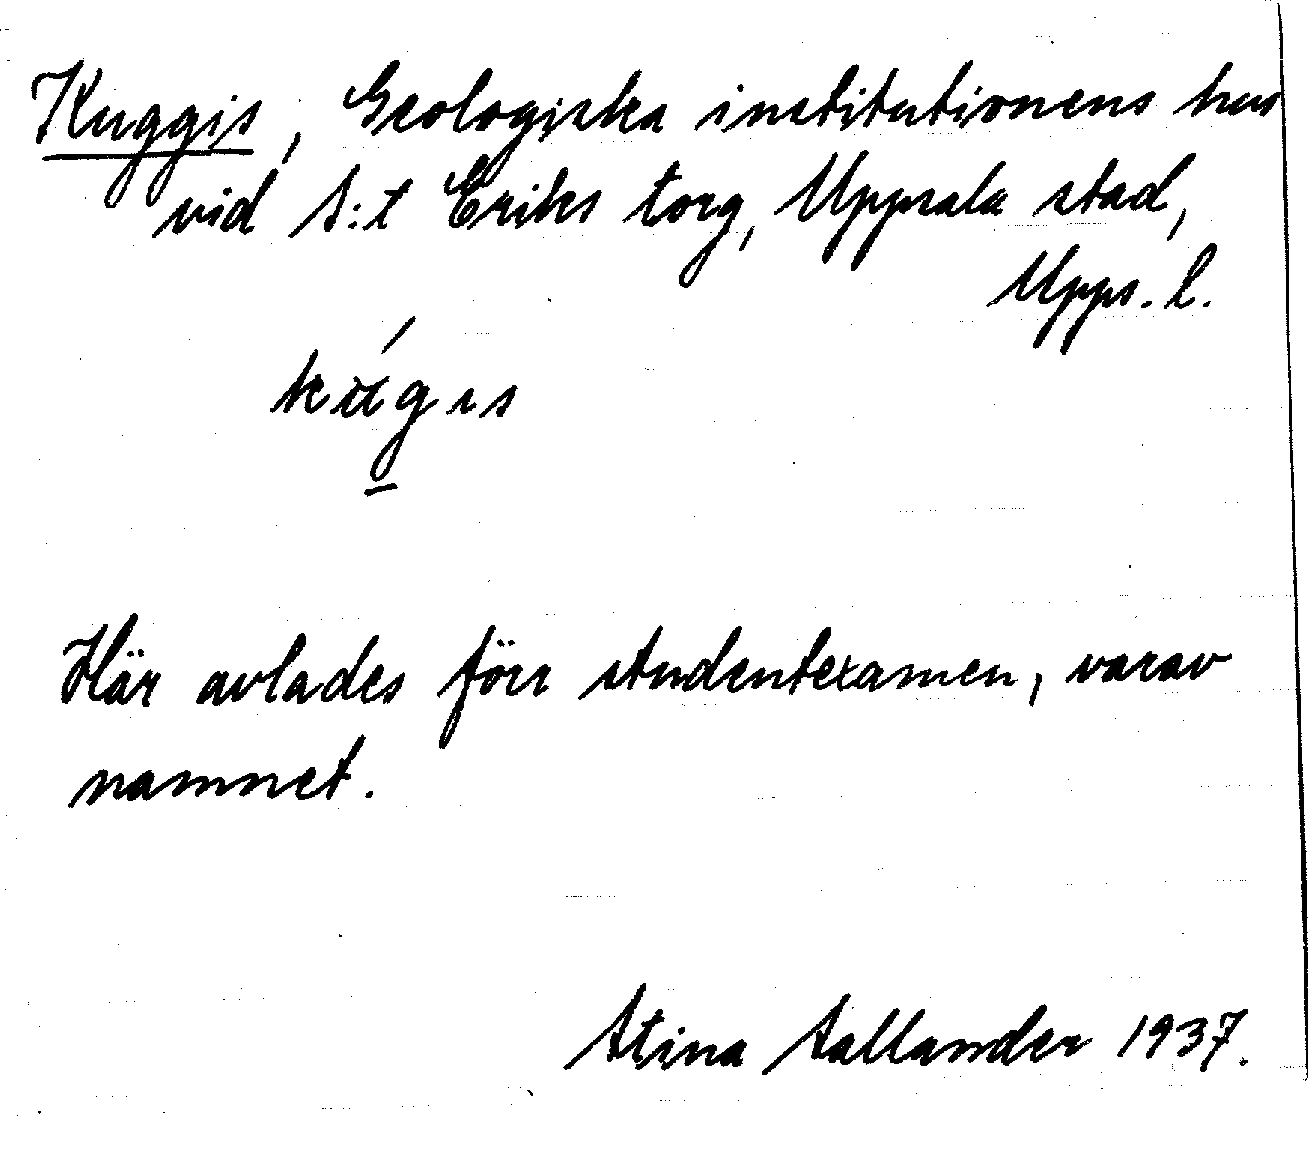 Kuggis, Geologiska institutionens hus
vid S:t Eriks torg, Uppsala stad,
Upps. l.
Här avlades förr studentexamen, varav
namnet.
Stina Sallander 1937.